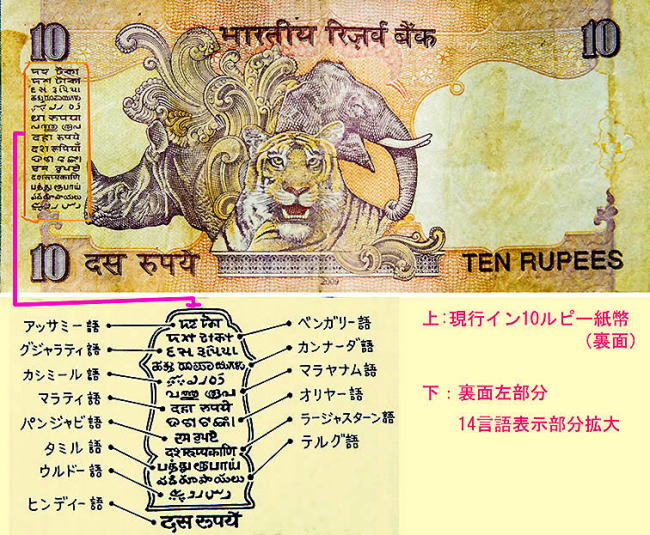 10 भारतीय रिज़र्व बैंक 10
দহ টকা
দশ টাকা
દસ રૂપિયા
धा रुपया
दहा रुपये
பத்து ரூபாய்
10 दस रुपये TEN RUPEES
2009
アッサミー語 দহ টকা ベンガリー語
দশ টাকা
グジャラティ語 દસ રૂપિયા カンナーダ語
カシミール語 マラヤナム語
マラティ語 दहा रुपये オリヤー語
パンジャビ語 ラージャスターン語
दशरूप्यकाणि
タミル語 பத்து ரூபாய் テルグ語
ウルドー語
ヒンディー語 दस रुपये
上:現行イン10ルピー紙幣
(裏面)
下:裏面左部分
14言語表示部分拡大